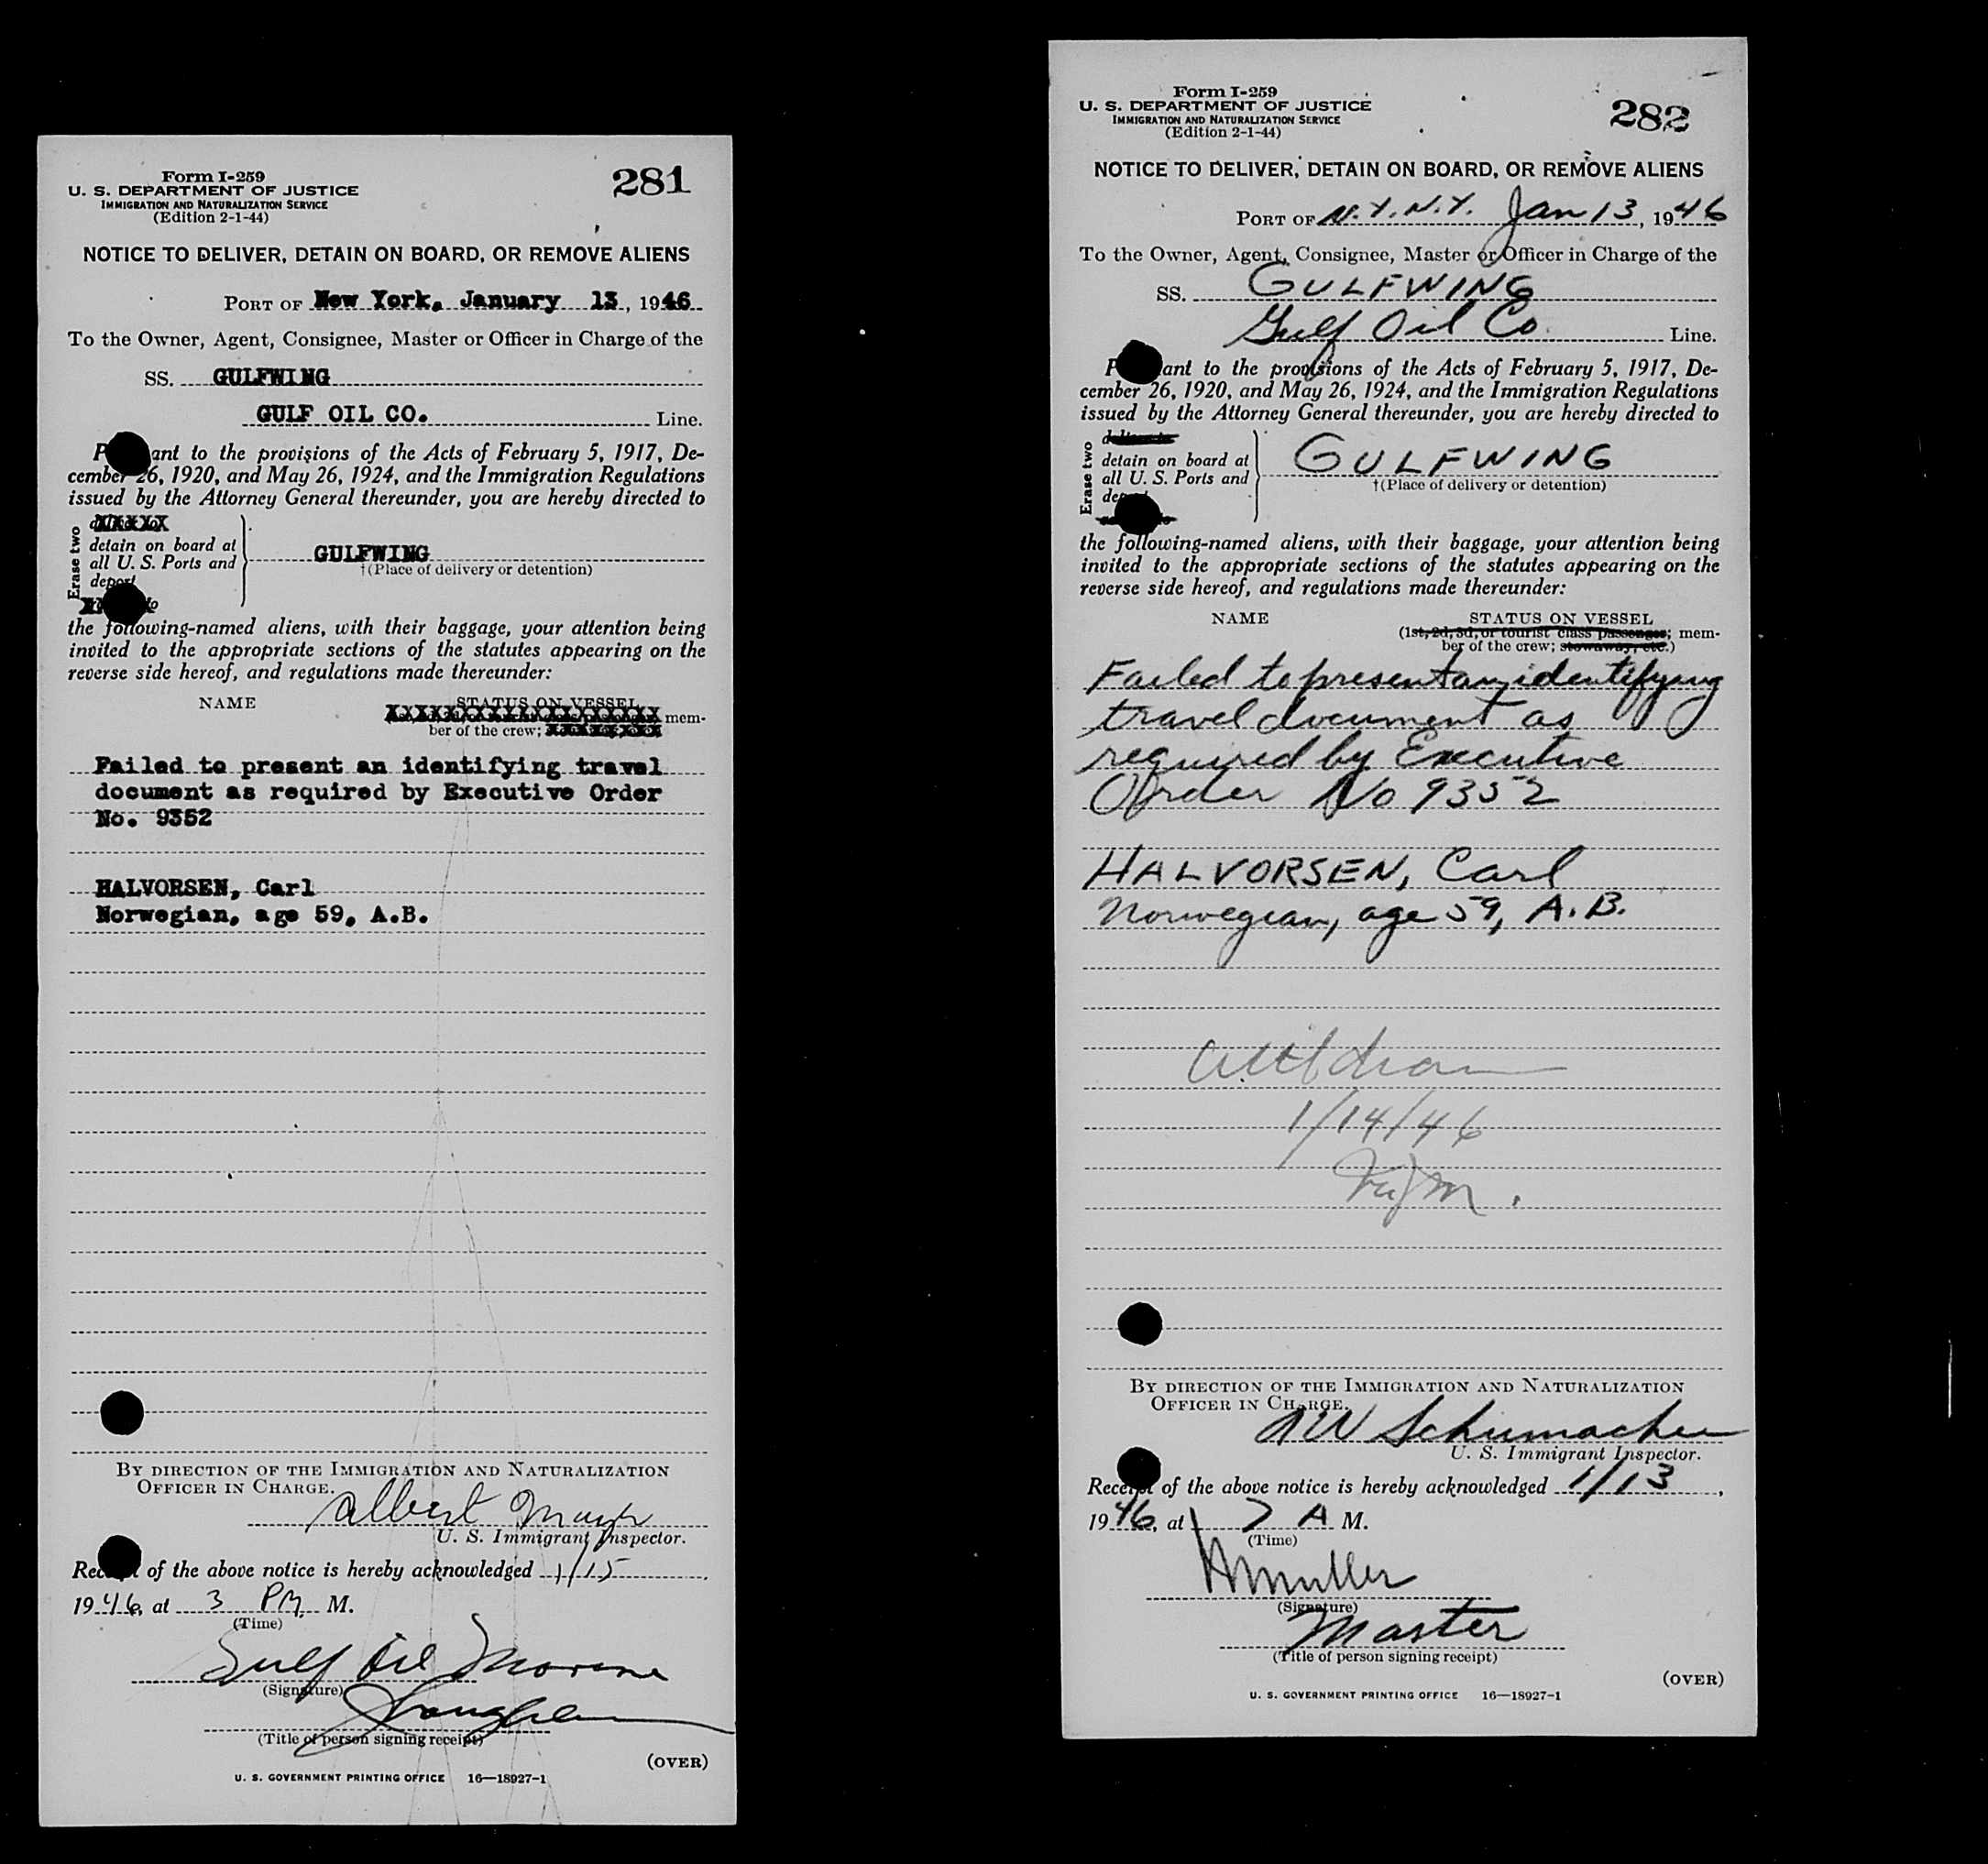 Form I-259
U. S. DEPARTMENT OF JUSTICE
IMMIGRATION AND NATURALIZATION SERVICE
(Edition 2-1-44)
281
NOTICE TO DELIVER, DETAIN ON BOARD, OR REMOVE ALIENS
PORT OF New York, January 13, 1946
To the Owner, Agent, Consignee, Master or Officer in Charge of the
SS. GULFWING
GULF OIL CO. Line.
P ant to the provisions of the Acts of February 5, 1917, De-
cember 26, 1920, and May 26, 1924, and the Immigration Regulations
issued by the Attorney General thereunder, you are hereby directed to
Erase two
detain on board at
all U. S. Ports and
deport
GULFWING
†(Place of delivery or detention)
the following-named aliens, with their baggage, your attention being
invited to the appropriate sections of the statutes appearing on the
reverse side hereof, and regulations made thereunder:
NAME STATUS ON VESSEL
mem-
ber of the crew;
Failed to present an identifying travel
document as required by Executive Order
No. 9352
HALVORSEN, Carl
Norwegian, age 59, A.B.
BY DIRECTION OF THE IMMIGRATION AND NATURALIZATION
OFFICER IN CHARGE.
Albert
U. S. Immigrant Inspector.
Receipt of the above notice is hereby acknowledged 1/15,
1946, at 3 PM M.
(Time)
Gulf Oil Marine
(Signature)
(Title of person signing receipt)
(OVER)
U. S. GOVERNMENT PRINTING OFFICE 16—18927-1
Form I-259
U. S. DEPARTMENT OF JUSTICE
IMMIGRATION AND NATURALIZATION SERVICE
(Edition 2-1-44)
282
NOTICE TO DELIVER, DETAIN ON BOARD, OR REMOVE ALIENS
PORT OF N.Y.N.Y. Jan 13, 1946
To the Owner, Agent, Consignee, Master or Officer in Charge of the
SS. GULFWING
Gulf Oil Co. Line.
P ant to the provisions of the Acts of February 5, 1917, De-
cember 26, 1920, and May 26, 1924, and the Immigration Regulations
issued by the Attorney General thereunder, you are hereby directed to
Erase two
detain on board at
all U. S. Ports and
GULFWING
†(Place of delivery or detention)
the following-named aliens, with their baggage, your attention being
invited to the appropriate sections of the statutes appearing on the
reverse side hereof, and regulations made thereunder:
NAME STATUS ON VESSEL
(1st, 2d, 3d, or tourist class passenger; mem-
ber of the crew; stowaway, etc.)
Failed to present an identifying
travel document as
required by Executive
Order No 9352
HALVORSEN, Carl
Norwegian, age 59, A.B.
1/14/46
BY DIRECTION OF THE IMMIGRATION AND NATURALIZATION
OFFICER IN CHARGE.
Schumacher
U. S. Immigrant Inspector.
Receipt of the above notice is hereby acknowledged 1/13,
1946, at 7 A M.
(Time)
Muller
(Signature)
Master
(Title of person signing receipt)
(OVER)
U. S. GOVERNMENT PRINTING OFFICE 16—18927-1